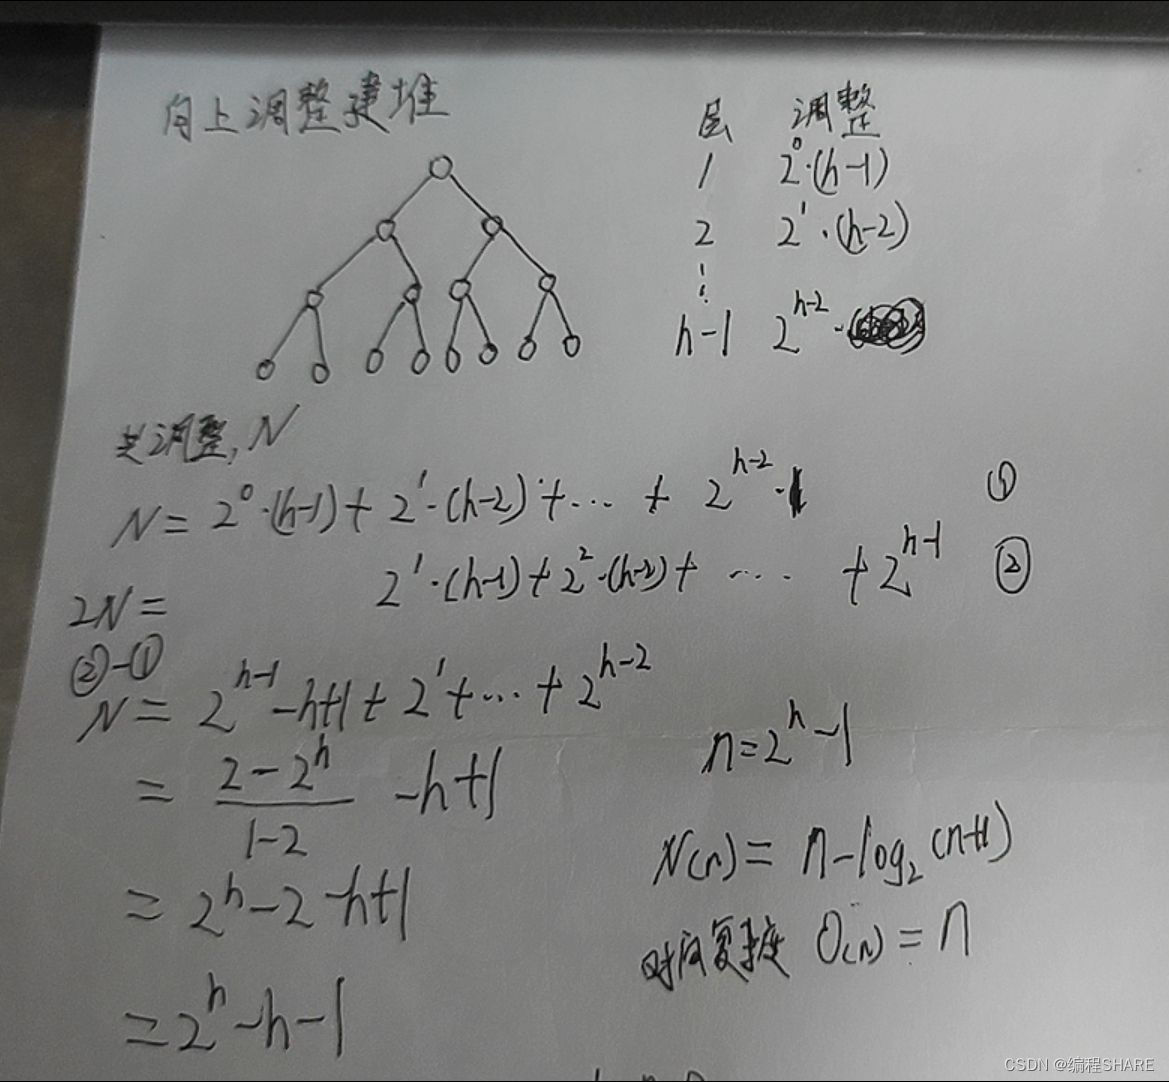 向上调整建堆
层 调整
1 2⁰·(h-1)
2 2¹·(h-2)
⋮
h-1 2^(h-2)·
共调整,N
N= 2⁰·(h-1)+ 2¹·(h-2)+… + 2^(h-2)·1 ①
2N= 2¹·(h-1)+2²·(h-2)+ …. +2^(h-1) ②
②-①
N= 2^(h-1)-h+1+2¹+…+2^(h-2)
= (2-2^h)/(1-2) -h+1
= 2^h-2-h+1
=2^h-h-1
n=2^h-1
N(n)= n-log₂(n+1)
时间复杂度 O(n)=n
CSDN @编程SHARE